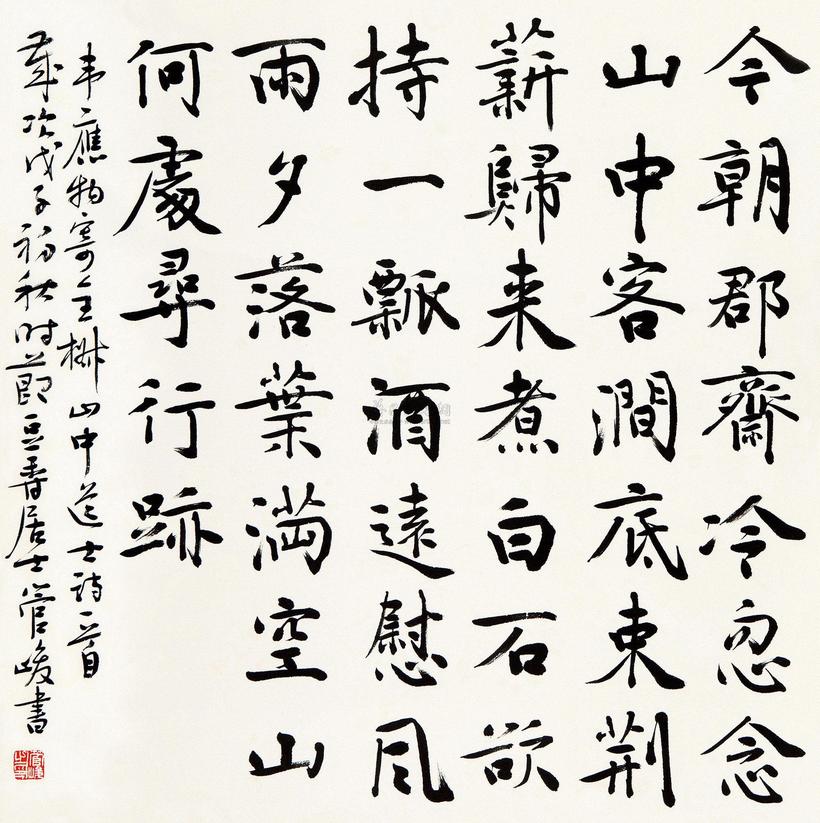 今朝郡齋冷忽念
山中客澗底束荆
薪歸来煮白石欲
持一瓢酒遠慰风
雨夕落葉満空山
何處尋行跡
韦應物寄全椒山中道士詩一首
歲次戊子初秋时節居士管峻書